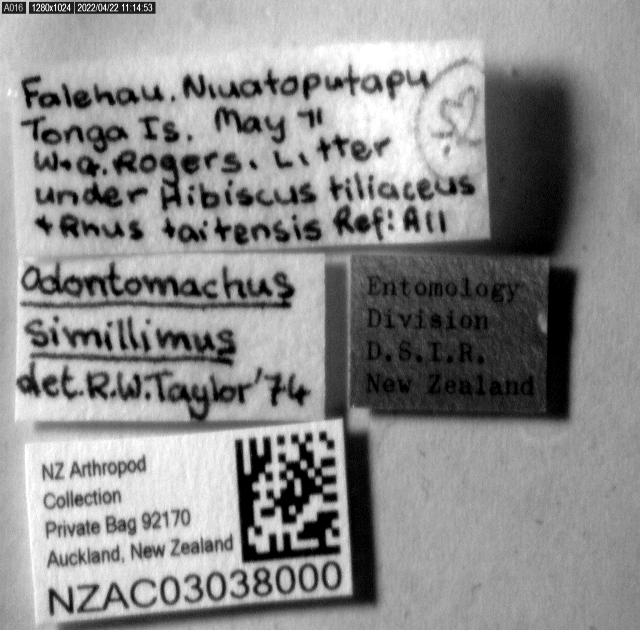 A016 1280x1024 2022/04/22 11:14:53
Falehau. Niuatoputapu
Tonga Is. May 71
W.G. Rogers. Litter
under Hibiscus tiliaceus
+ Rhus taitensis Ref: A11
Odontomachus
simillimus
det. R.W. Taylor '74
Entomology
Division
D.S.I.R.
New Zealand
NZ Arthropod
Collection
Private Bag 92170
Auckland, New Zealand
NZAC03038000